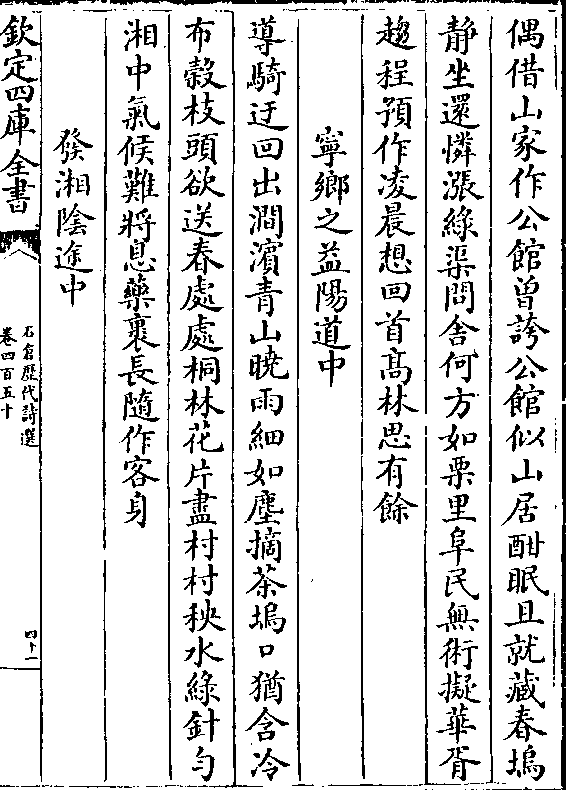 偶借山家作公館曽誇公館似山居酣眠且就藏春塢
静坐還憐漲緑渠問舍何方如栗里阜民無術擬華胥
趨程預作凌晨想回首髙林思有餘
寧鄉之益陽道中
導騎迂回出澗濱青山曉雨細如塵摘茶塢口猶含冷
布穀枝頭欲送春處處桐林花片盡村村秧水綠針勻
湘中氣候難將息藥裹長隨作客身
發湘陰途中
欽定四庫全書
石倉歴代詩選
卷四百五十
四十一